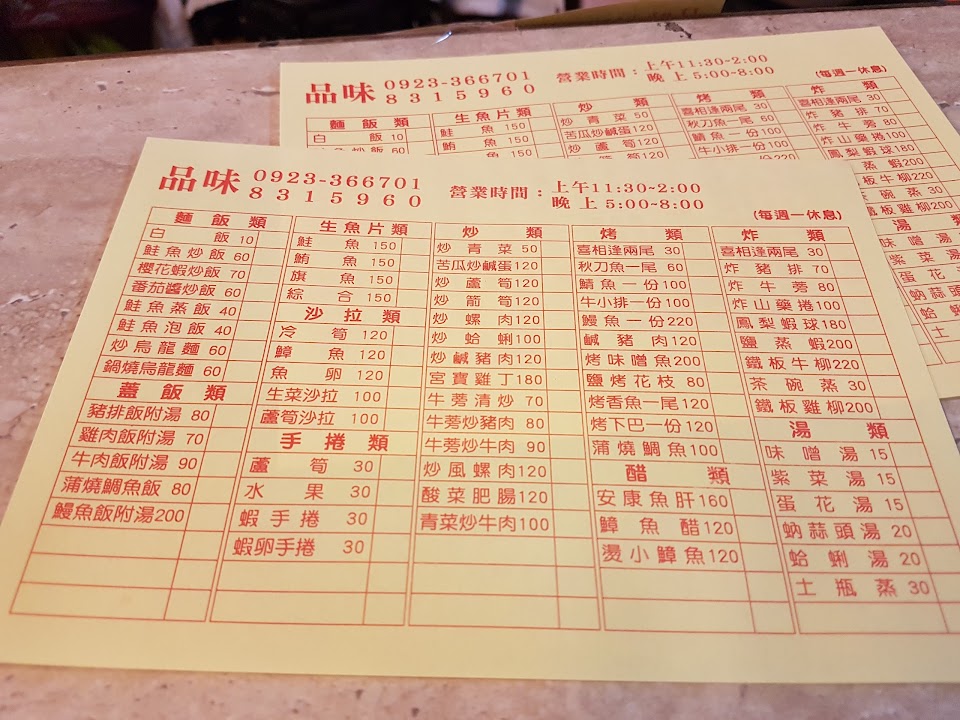 品味 0923-366701 營業時間：上午11:30~2:00
8315960 晚上5:00~8:00
(每週一休息)
麵飯類 生魚片類 炒類 烤類 炸類
白飯 10 鮭魚 150 炒青菜 50 喜相逢兩尾 30 喜相逢兩尾 30
鮭魚炒飯 60 鮪魚 150 苦瓜炒鹹蛋120 秋刀魚一尾 60 炸豬排 70
品味 0923-366701 營業時間：上午11:30~2:00
8315960 晚上5:00~8:00
(每週一休息)
麵飯類
白飯 10
鮭魚炒飯 60
櫻花蝦炒飯 70
番茄醬炒飯 60
鮭魚蒸飯 40
鮭魚泡飯 40
炒烏龍麵 60
鍋燒烏龍麵 60
蓋飯類
豬排飯附湯 80
雞肉飯附湯 70
牛肉飯附湯 90
蒲燒鯛魚飯 80
鰻魚飯附湯200
生魚片類
鮭魚 150
鮪魚 150
旗魚 150
綜合 150
沙拉類
冷筍 120
鱆魚 120
魚卵 120
生菜沙拉 100
蘆筍沙拉 100
手捲類
蘆筍 30
水果 30
蝦手捲 30
蝦卵手捲 30
炒類
炒青菜 50
苦瓜炒鹹蛋120
炒蘆筍120
炒箭筍120
炒螺肉120
炒蛤蜊100
炒鹹豬肉120
宮寶雞丁180
牛蒡清炒 70
牛蒡炒豬肉 80
牛蒡炒牛肉 90
炒風螺肉120
酸菜肥腸120
青菜炒牛肉100
烤類
喜相逢兩尾 30
秋刀魚一尾 60
鯖魚一份100
牛小排一份100
鰻魚一份220
鹹豬肉120
烤味噌魚200
鹽烤花枝 80
烤香魚一尾120
烤下巴一份120
蒲燒鯛魚100
醋類
安康魚肝160
鱆魚醋120
燙小鱆魚120
炸類
喜相逢兩尾 30
炸豬排 70
炸牛蒡 80
炸山藥捲100
鳳梨蝦球180
鹽蒸蝦200
鐵板牛柳220
茶碗蒸 30
鐵板雞柳200
湯類
味噌湯 15
紫菜湯 15
蛋花湯 15
蚋蒜頭湯 20
蛤蜊湯 20
土瓶蒸 30